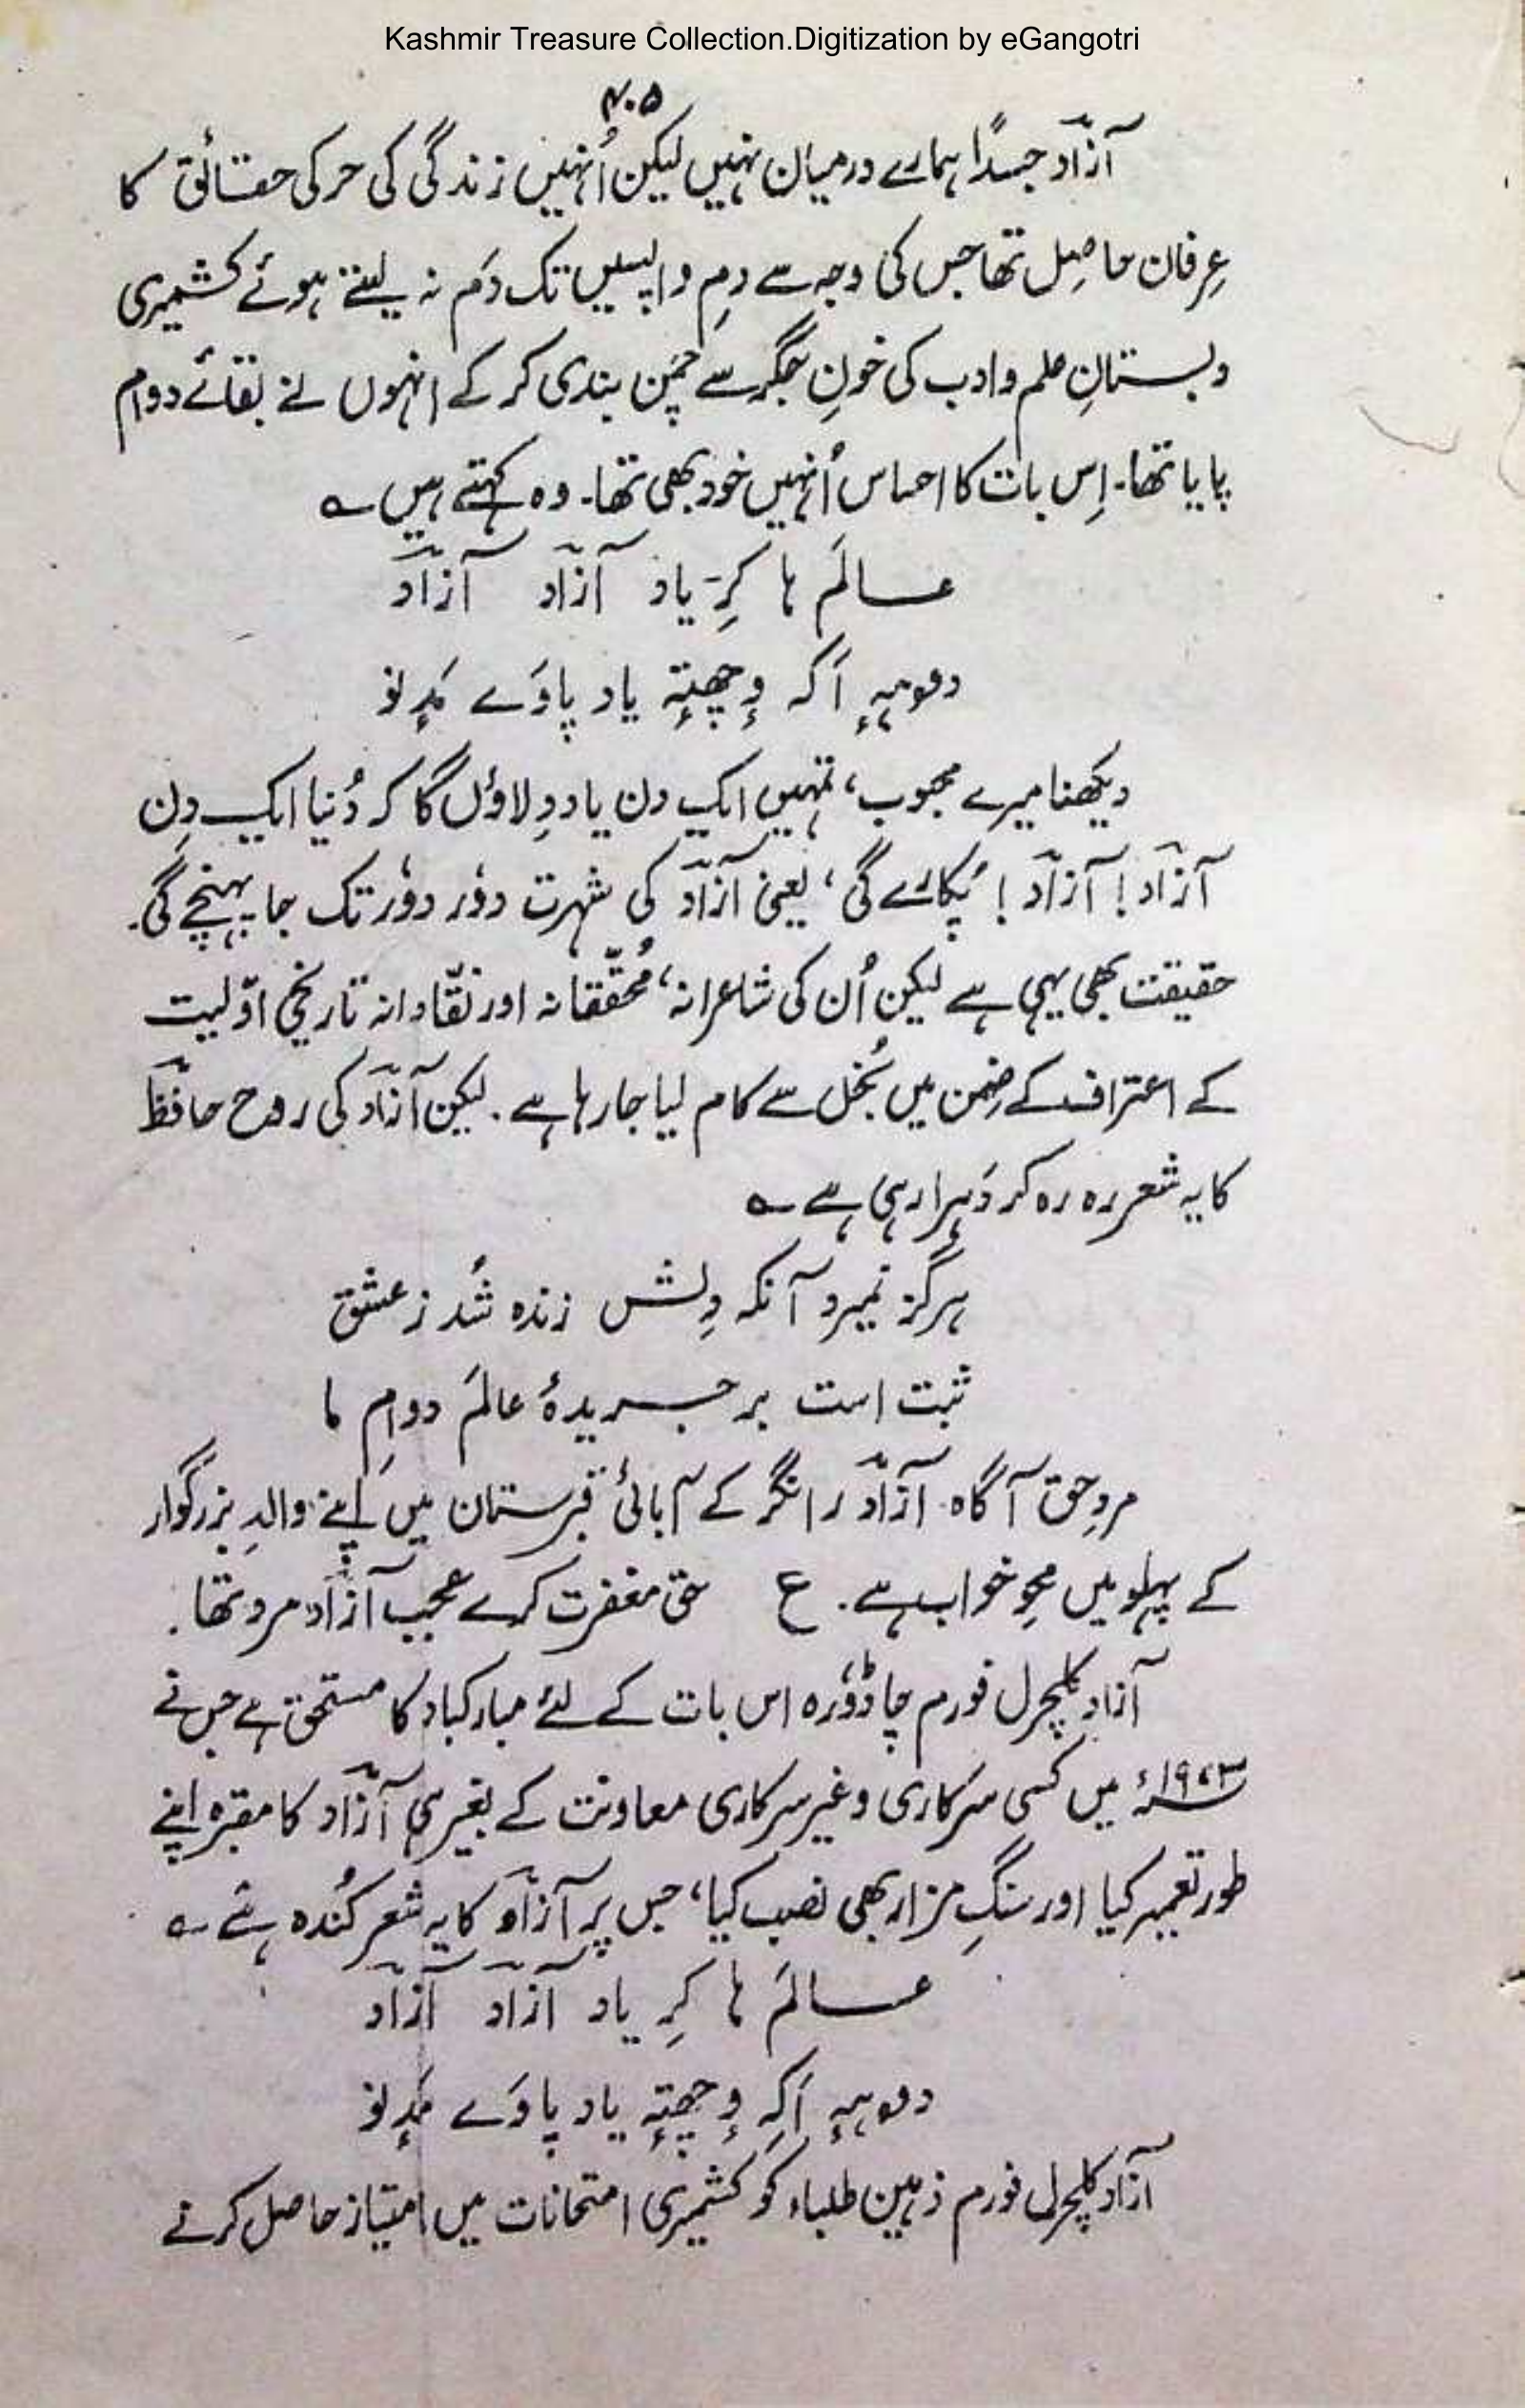 Kashmir Treasure Collection.Digitization by eGangotri
۴۰۵
آزاد جسداً ہمارے درمیان نہیں لیکن اُنہیں زندگی کی حرکی حقائق کا
عِرفان حاصِل تھا جس کی وجہ سے دمِ واپسیں تک دَم نہ لیتے ہوئے کشمیری
دبستانِ علم و ادب کی خونِ جگر سے چمن بندی کر کے انہوں نے بقائے دوام
پایا تھا۔ اِس بات کا احساس اُنہیں خود بھی تھا۔ وہ کہتے ہیں ؎
عالَم ہا کرِ یاد آزاد آزاد
دوہہٕ اَکہ وٕچھتہٕ یاد پاوَے مَدٕنو
دیکھنا میرے محبوب، تمہیں ایک دن یاد دِلاؤں گا کہ دُنیا ایک دِن
آزاد! آزاد! پُکارے گی، یعنی آزاد کی شہرت دوٗر دوٗر تک جا پہنچے گی۔
حقیقت بھی یہی ہے لیکن اُن کی شاعرانہ، مُحقّقانہ اور نقّادانہ تاریخی اوّلیت
کے اعتراف کے ضِمن میں بُخل سے کام لیا جا رہا ہے۔ لیکن آزاد کی روح حافظ
کا یہ شعر رہ رہ کر دَہرا رہی ہے ؎
ہرگز نمیرد آنکہ دِلش زندہ شُد ز عشق
ثبت است بر جریدۂ عالَم دوامِ ما
مردِ حق آگاہ آزاد رانگر کے آبائی قبرستان میں اپنے والدِ بزرگوار
کے پہلو میں محوِ خواب ہے۔ ع حق مغفرت کرے عجب آزاد مرد تھا۔
آزاد کلچرل فورم چاڈوٗرہ اس بات کے لئے مبارکباد کا مستحق ہے جس نے
۱۹۷۳ء میں کسی سرکاری و غیر سرکاری معاونت کے بغیر ہی آزاد کا مقبرہ اپنے
طور تعمیر کیا اور سنگِ مزار بھی نصب کیا، جس پر آزاد کا یہ شعر کُندہ ہے ؎
عالَم ہا کرِ یاد آزاد آزاد
دوہہٕ اَکہِ وٕچھتہٕ یاد پاوَے مَدٕنو
آزاد کلچرل فورم ذہین طلباء کو کشمیری امتحانات میں امتیاز حاصل کرنے